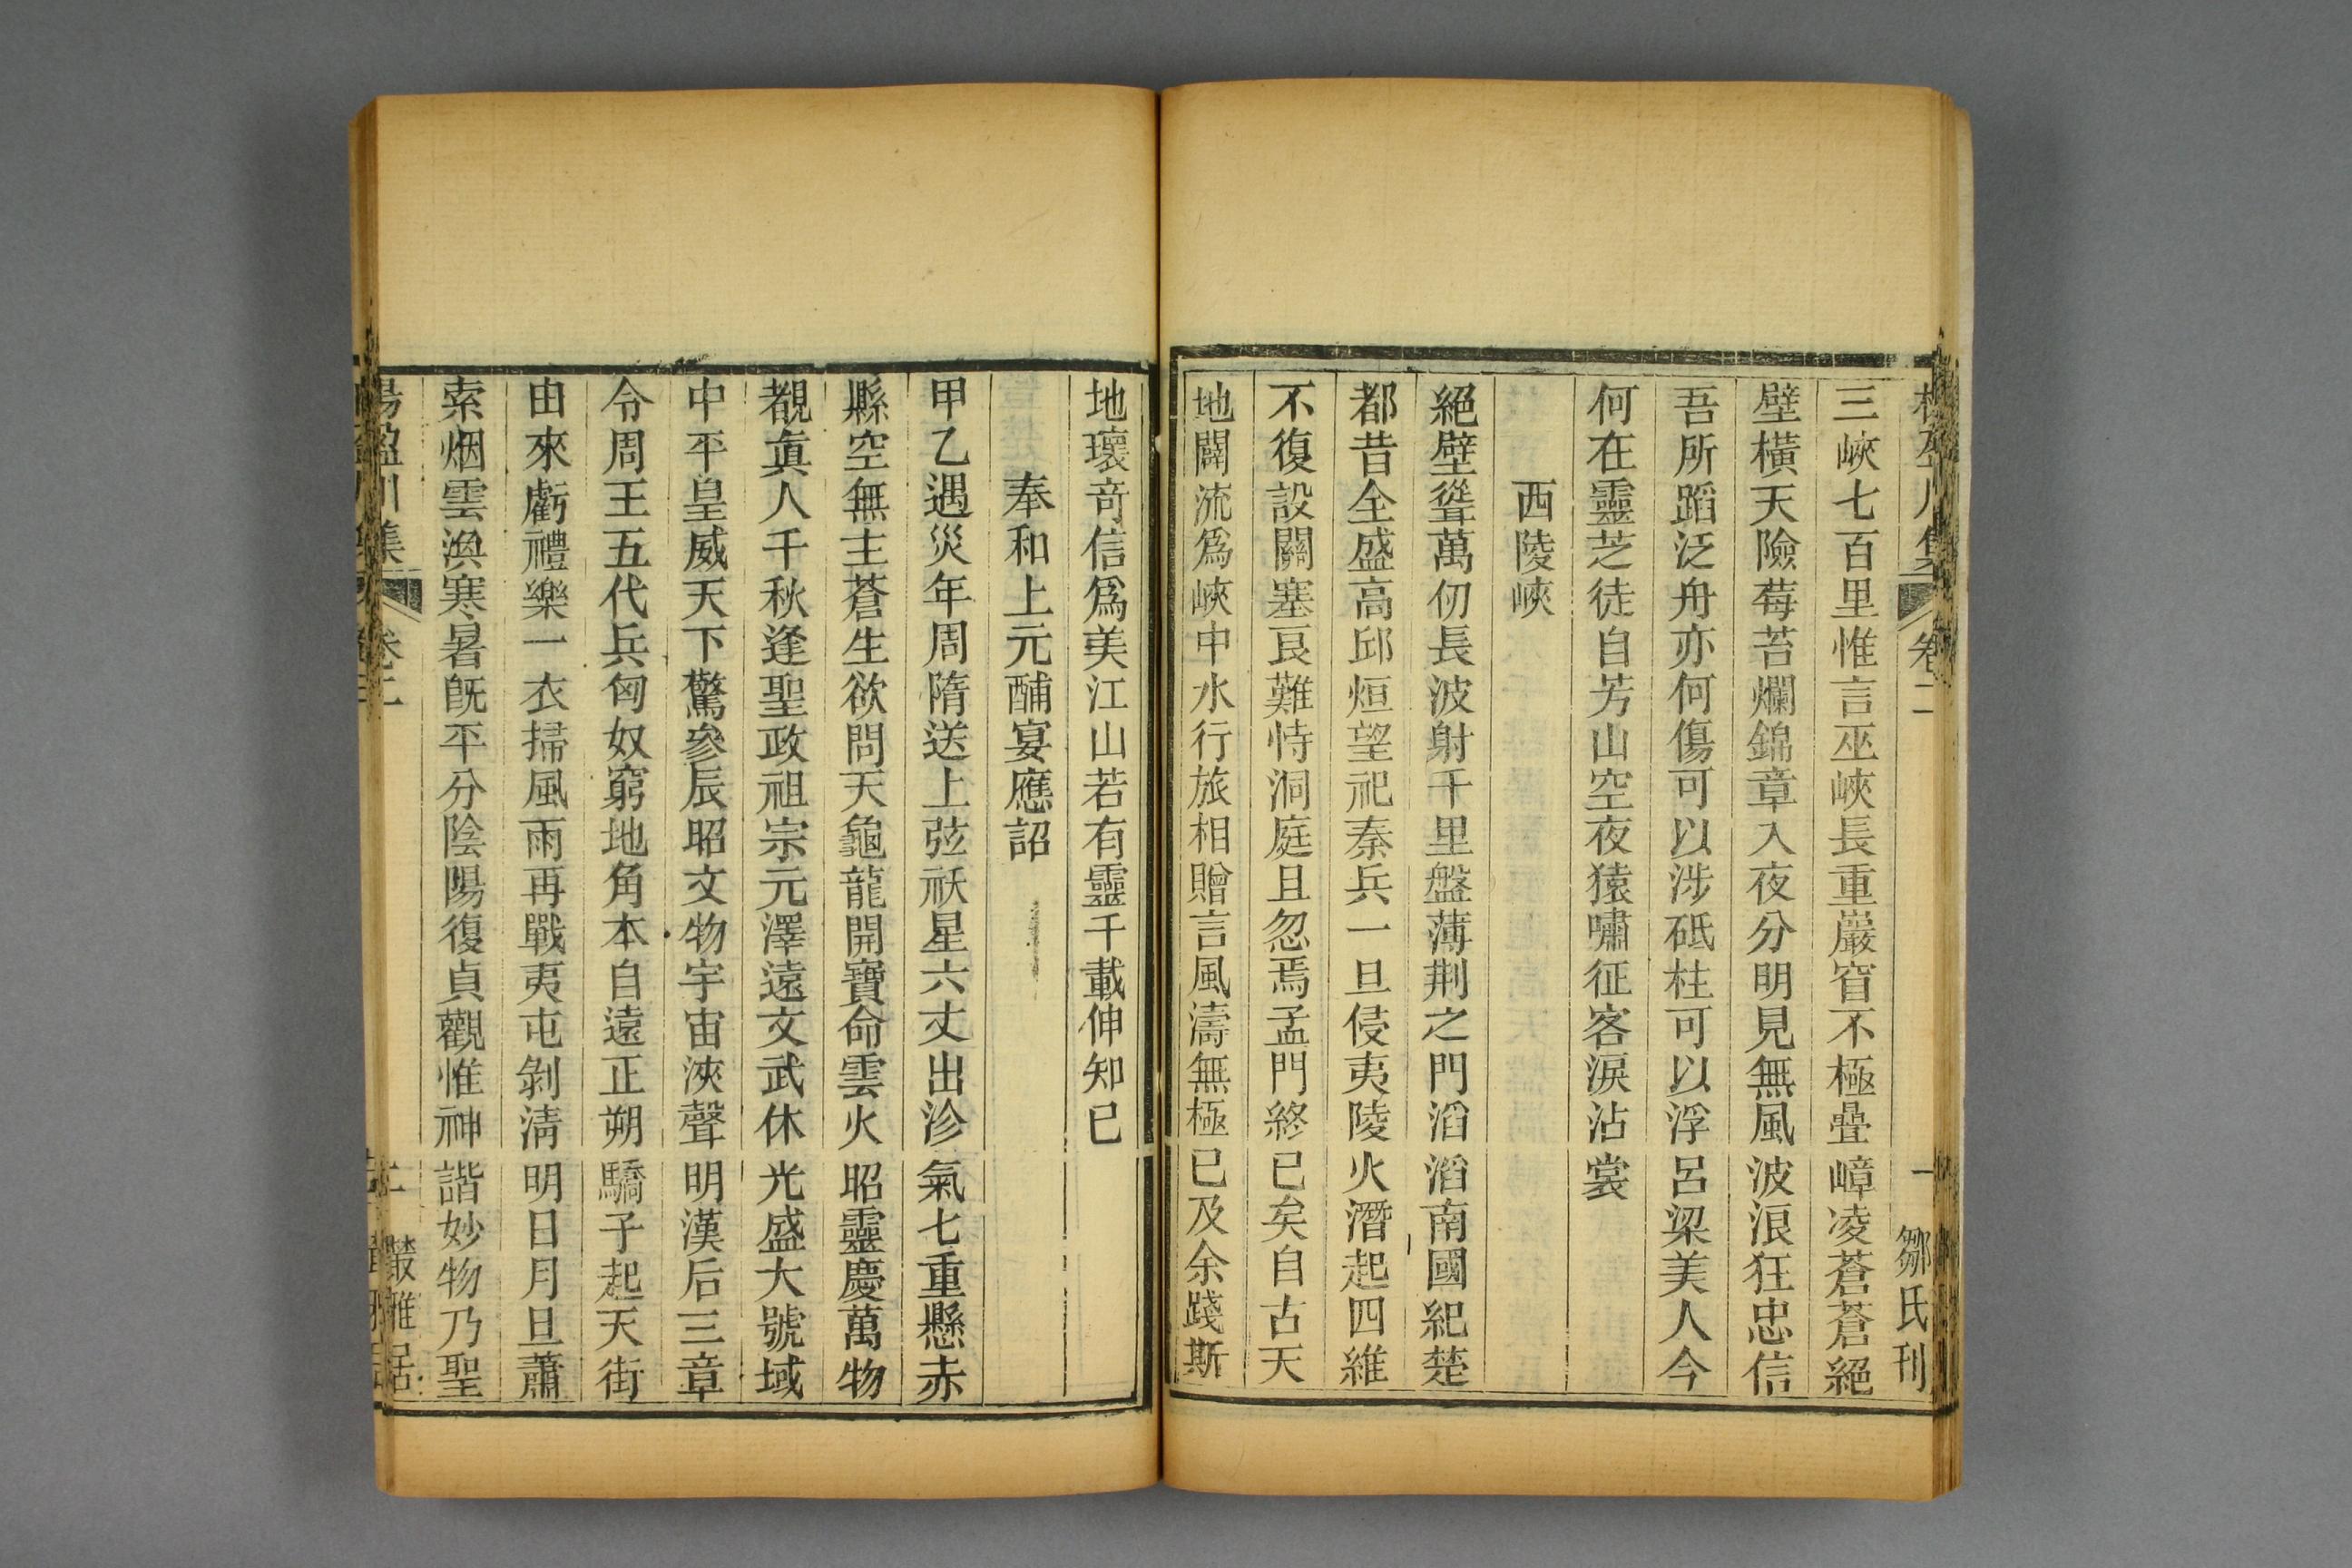 楊盈川集 卷二 一 鄒氏刊
三峽七百里惟言巫峽長重巖窅不極疊嶂凌蒼蒼絕
壁橫天險莓苔爛錦章入夜分明見無風波浪狂忠信
吾所蹈泛舟亦何傷可以涉砥柱可以浮呂梁美人今
何在靈芝徒自芳山空夜猿嘯征客淚沾裳
西陵峽
絕壁聳萬仞長波射千里盤薄荆之門滔滔南國紀楚
都昔全盛高邱烜望祀秦兵一旦侵夷陵火潛起四維
不復設關塞良難恃洞庭且忽焉孟門終已矣自古天
地闢流爲峽中水行旅相贈言風濤無極已及余踐斯
地瓌奇信爲美江山若有靈千載伸知已
奉和上元酺宴應詔
甲乙遇災年周隋送上弦祅星六丈出沴氣七重懸赤
縣空無主蒼生欲問天龜龍開寶命雲火昭靈慶萬物
覩眞人千秋逢聖政祖宗元澤遠文武休光盛大號域
中平皇威天下驚參辰昭文物宇宙浹聲明漢后三章
令周王五代兵匈奴窮地角本自遠正朔驕子起天街
由來虧禮樂一衣掃風雨再戰夷屯剝淸明日月旦蕭
索烟雲渙寒暑旣平分陰陽復貞觀惟神諧妙物乃聖
楊盈川集 卷二 二 叢雅居